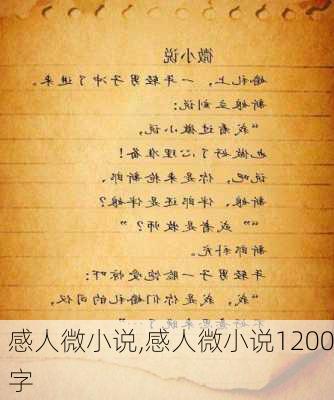 微小说
婚礼上，一年轻男子冲了进来。
新娘立刻说：
“我看过微小说，
也做好了心理准备！
说吧，你是来抢新郎、
新娘、伴郎还是伴娘？
“”或者是牧师？”
新郎补充。
年轻男子一脸饱受惊吓：
“我，我是你们婚礼的司仪，
不好意思来晚
感人微小说,感人微小说1200
字